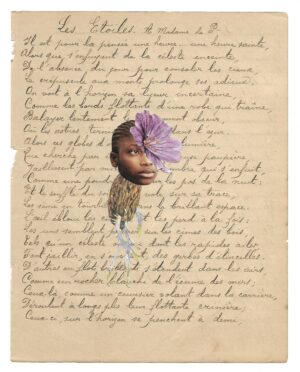 Les Etoiles. A Madame de P.
Il est pour la pensée une heure.. une heure sainte,
Alors que, s'enfuyant de la céleste enceinte,
De l'absence du jour pour consoler les cieux,
Le crépuscule aux monts prolonge ses adieux.
On voit à l'horizon sa lueur incertaine,
Comme les bords flottants d'une robe qui traîne,
Balayer lentement le firmament obscur,
Où les astres ternis dans l'azur
Alors ces globes d'or lumière,
Que cherche par paupière,
Jaillissent par mi ombre qui s'enfuit,
Comme une pou les pas de la nuit;
Et le souffle du soi sur sa trace,
Les sème en tourbillon brillant espace.
L'œil ébloui les che les perd à la fois;
Les uns semblent planer sur les cimes des bois,
Tels qu'un céleste dont les rapides ailes
Font jaillir, en s'o t, des gerbes d'étincelles.
D'autres en flots brillants s'étendent dans les airs,
Comme un rocher blanchi de l'écume des mers;
Ceux-là, comme un coursier volant dans la carrière,
Déroulent à longs plis leur flottante crinière;
Ceux-ci, sur l'horizon se penchant à demi,